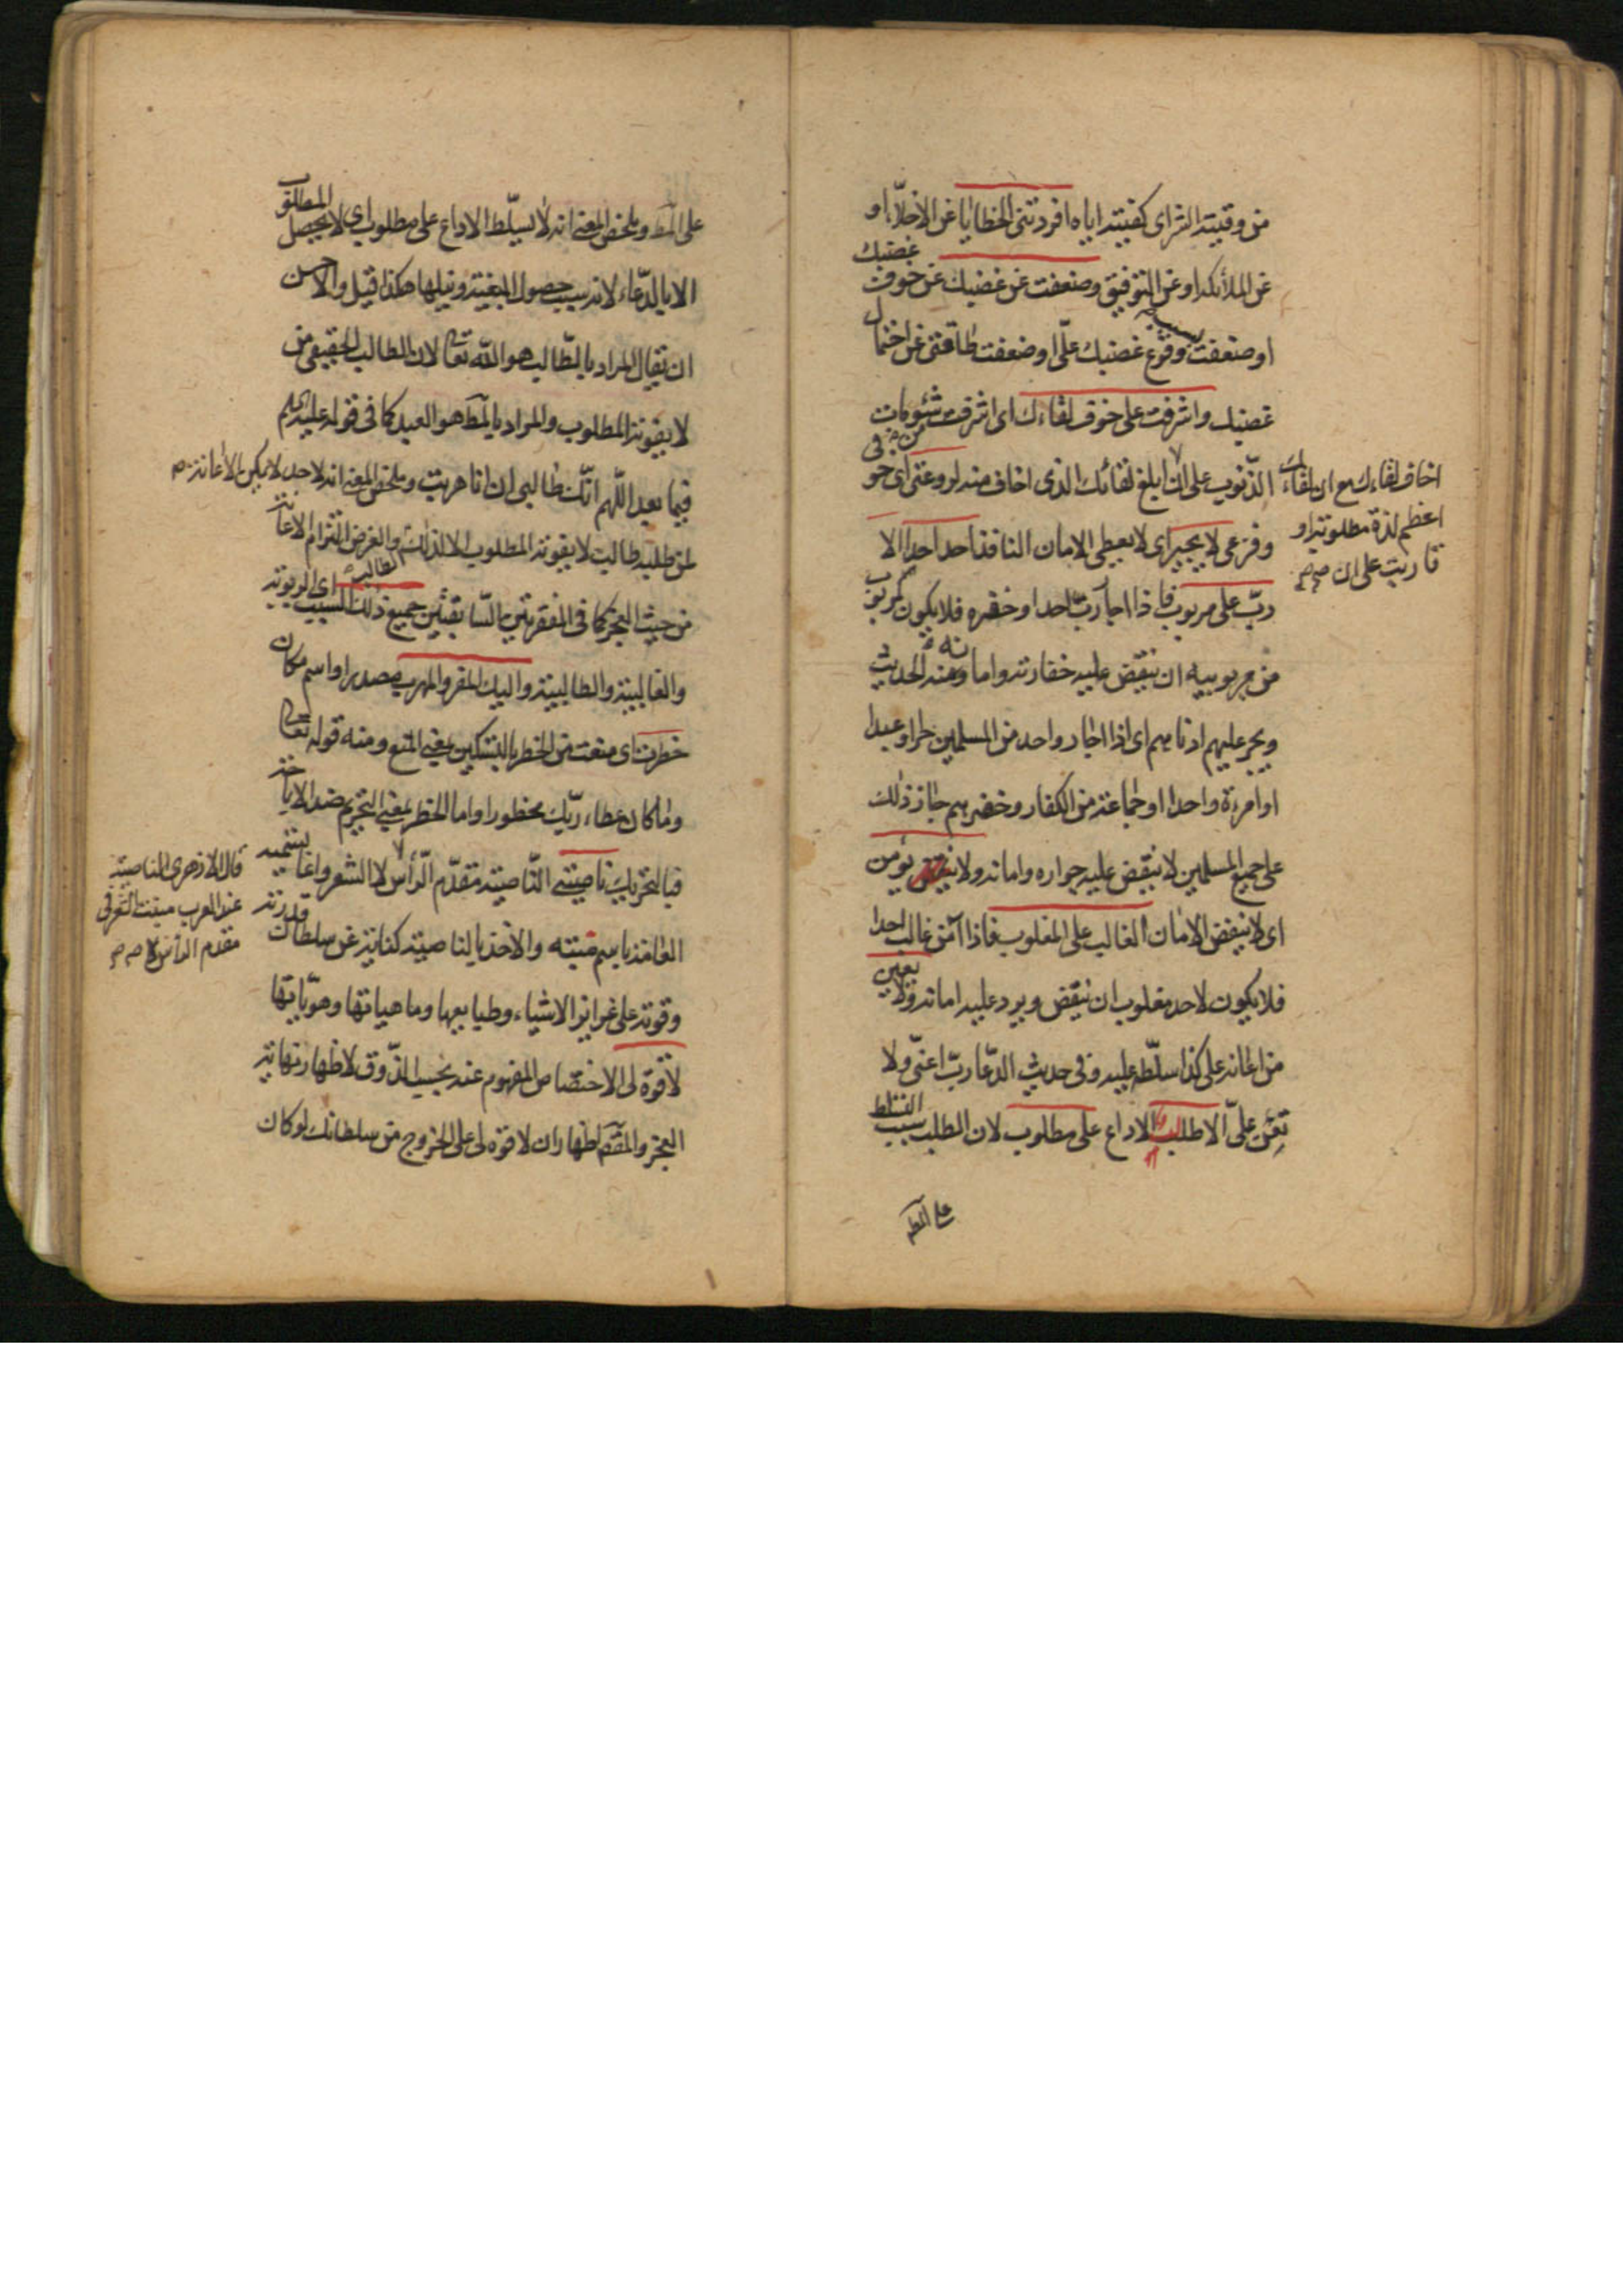 من وقيته الشر اى كفيته اياه افردتنى الخطايا عن الاخلّاء او
عن الملائكة او عن التوفيق وضعفت عن غضبك عن خوف غضبك
او ضعفت بسبب وقوع غضبك علىّ او ضعفت طاقتى عن احتمال
غضبك واشرفت على خوف لقاءك اى اشرفت من شئومات
الذنوب على ان ابلغ لقائك الذى اخاف منه لروعتى اى خوفى
اخاف لقاءك مع ان لقاءك
اعظم لذة مطلوبة او
قاربت على ان صح
وفزعى لا يجير اى لا يعطى الامان النافذ احد احدا الا
ربّ على مربوب فاذا اجار ربّ احدا وخفره فلا يكون لمربوب
من مربوبيه ان ينقض عليه خفارته وامانه ومنه الحديث
ويجير عليهم ادناهم اى اذا اجار واحد من المسلمين حرا او عبدا
او امرءة واحدا او جماعة من الكفار وخفرهم جاز ذلك
على جميع المسلمين لا ينقض عليه جواره وامانه ولا يؤمن
اى لا ينفض الامان الغالب على المغلوب فاذا آمن غالب احدا
فلا يكون لاحد مغلوب ان ينقض ويرد عليه امانه ولا يعين
من اعانه على كذا سلّطه عليه وفى حديث الدعا ربّ اعنّى ولا
تعن علىّ الا طالب الاداع على مطلوب لان الطلب سبب التسلط
على المط
على المط وملخص المعنى انه لا يسلّط الاداع على مطلوب اى لا يحصل المطلوب
الا بالدّعاء لانه سبب حصول البغية ونيلها هكذا قيل والاحسن
ان يقال المراد بالطّالب هو الله تعالى لان الطالب الحقيقى من
لا يفوته المطلوب والمراد بالمط هو العبد كما فى قوله عليه السلام
فيما بعد اللّهم انّك طالبى ان انا هربت وملخص المعنى انه لاحد لا يمكن الاعانة صح
لمن طلبه طالب لا يفوته المطلوب الا لذلك الطالب والغرض التزام الاعانة
من حيث العجز كما فى الفقرتين السّابقتين جميع ذلك السبب اى الربوبية
والغالبية والطالبية واليك المفر والمهرب مصدر او اسم مكان
خطرت اى منعت من الخطر بالتسكين بمعنى المنع ومنه قوله تعالى
وما كان عطاء ربّك محظورا واما الحظر بمعنى التحريم ضد الاباحة
فبالخير بك ناصيتى النّاصية مقدّم الرّأس لا الشعر وانما تسميه
قال الازهرى الناصية
عند العرب منبت الشعر فى
مقدم الرأس لا صح
العامة باسم منبته والاخذ بالناصية كناية عن سلطانك قدرته
وقوته على غرايز الاشياء وطبايعها وماهياتها وهوّياتها
لا قوة لى الاختصاص المفهوم عنه بحسب الذّوق لاظهار نهاية
العجز والمقصّ اظهار ان لا قوة لى على الخروج من سلطانك لو كان